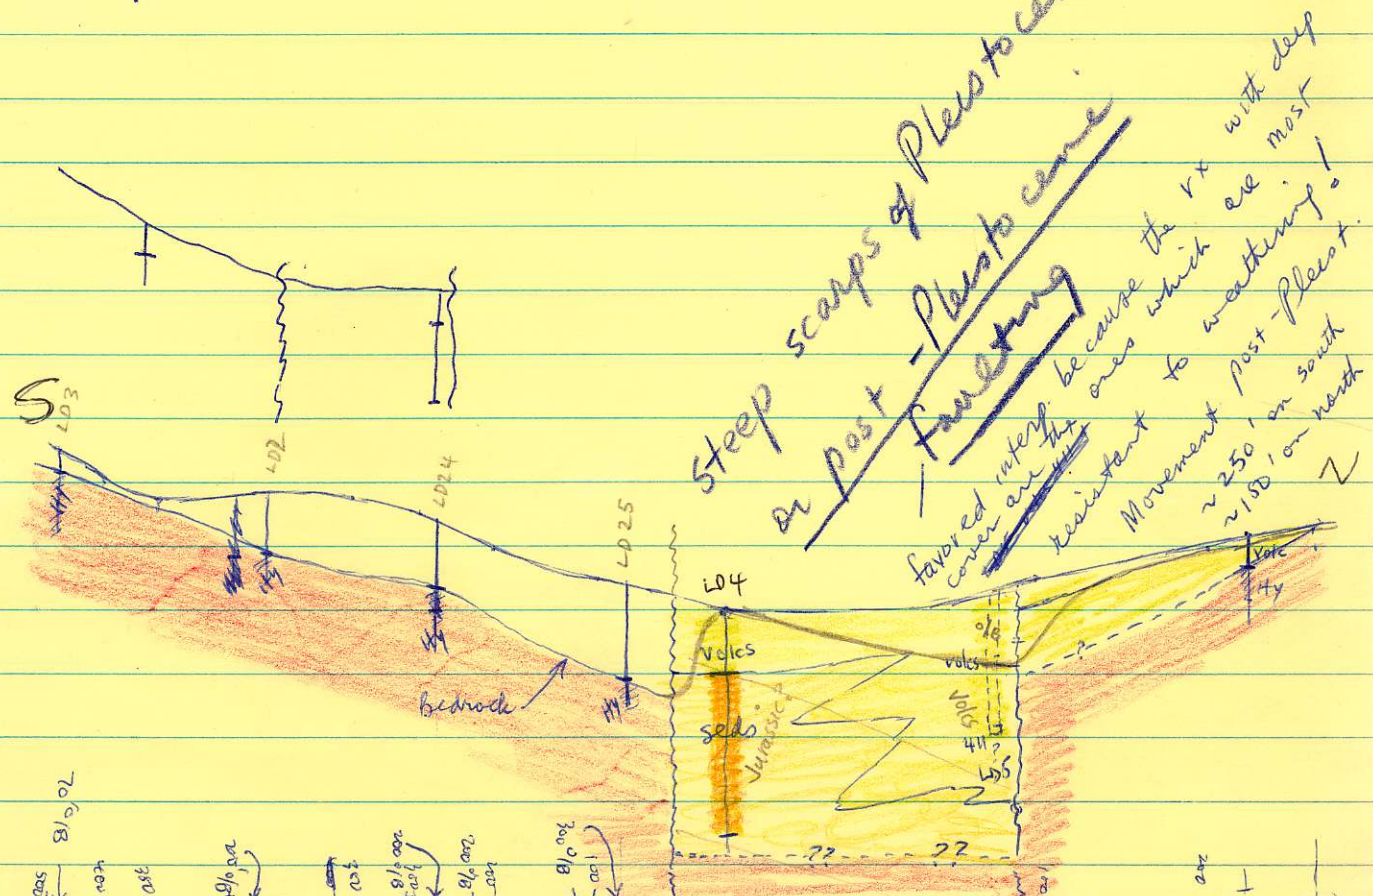 Steep scarps of Pleistoce
or post-Pleistocene
Faulting
favored interp. because the rx with deep
cover are the ones which are most
resistant to weathering!
Movement post-Pleist.
~250' on south
~150' on north
S
LD3
LD2
LD24
LD25
LD4
Hy
Hy
Hy
Hy
Bedrock
Volcs
seds
Jurassic?
o/b
volcs
Volcs
411
?
LD5
?
volc
Hy
N
??
??
70' o/B
300 o/B
100
200 o/B
300
200